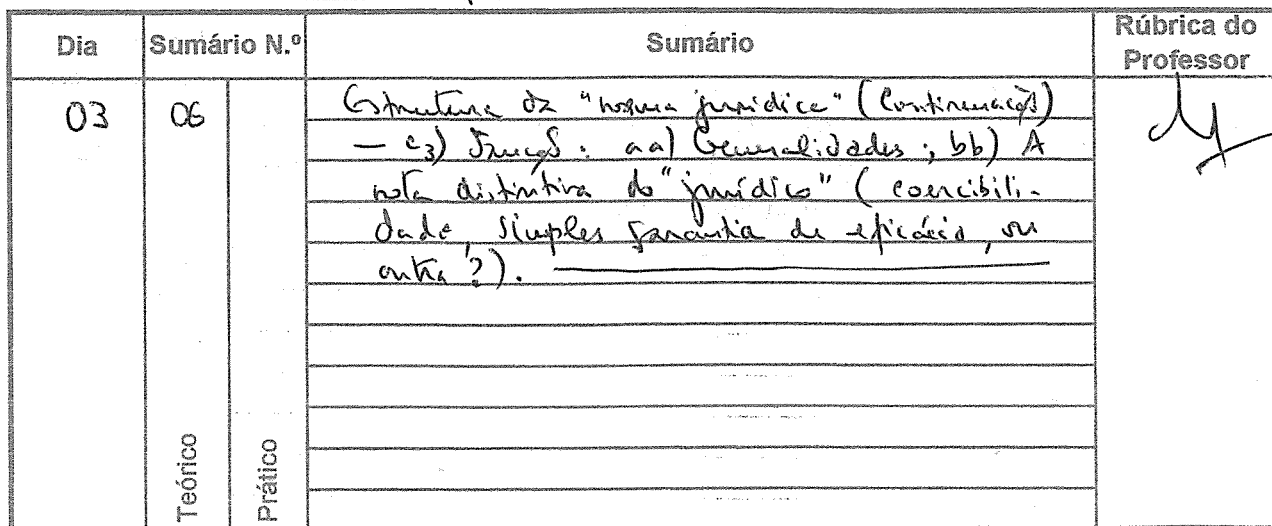 Dia Sumário N.º Sumário Rúbrica do Professor
03 06 Estrutura da "norma jurídica" (Continuação)
— c3) Sanção: aa) Generalidades; bb) A
nota distintiva do "jurídico" (coercibili-
dade, simples garantia de eficácia, ou
outra?).
Teórico
Prático